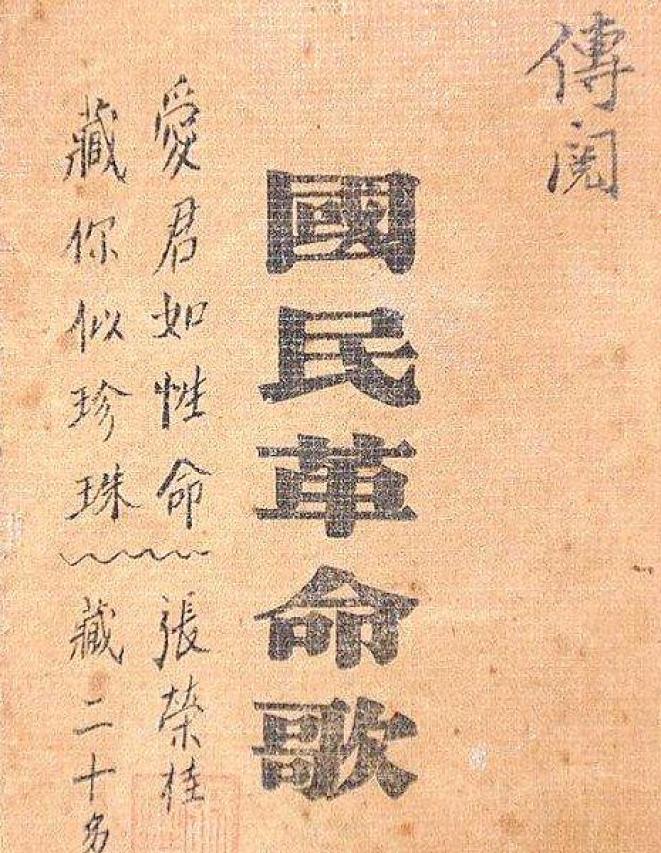 傳閱
國民革命歌
愛君如性命 張榮桂
藏你似珍珠 藏二十多